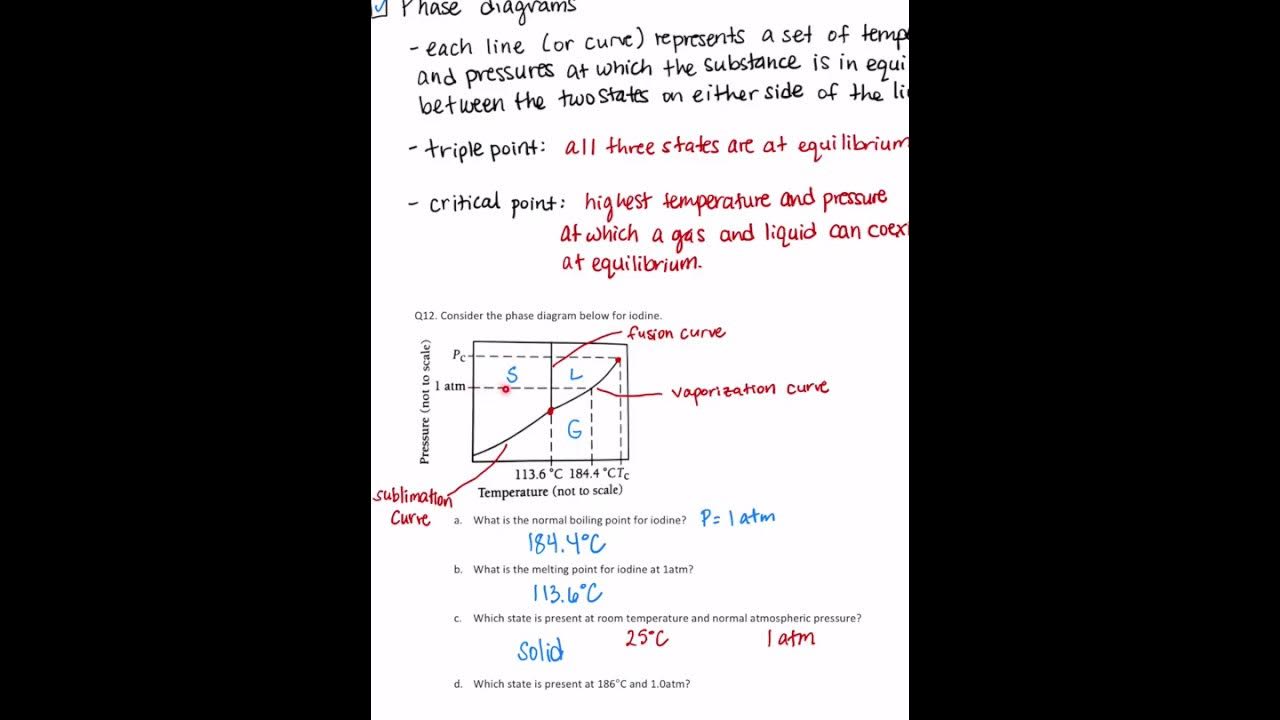 Phase diagrams
- each line (or curve) represents a set of tempe
and pressures at which the substance is in equi
between the two states on either side of the li
- triple point: all three states are at equilibrium
- critical point: highest temperature and pressure
at which a gas and liquid can coex
at equilibrium.
Q12. Consider the phase diagram below for iodine.
fusion curve
Pc
S
L
1 atm
vaporization curve
G
Pressure (not to scale)
113.6 °C 184.4 °C Tc
Temperature (not to scale)
sublimation
curve
a. What is the normal boiling point for iodine? P= 1 atm
184.4°C
b. What is the melting point for iodine at 1atm?
113.6°C
c. Which state is present at room temperature and normal atmospheric pressure?
25°C 1 atm
solid
d. Which state is present at 186°C and 1.0atm?